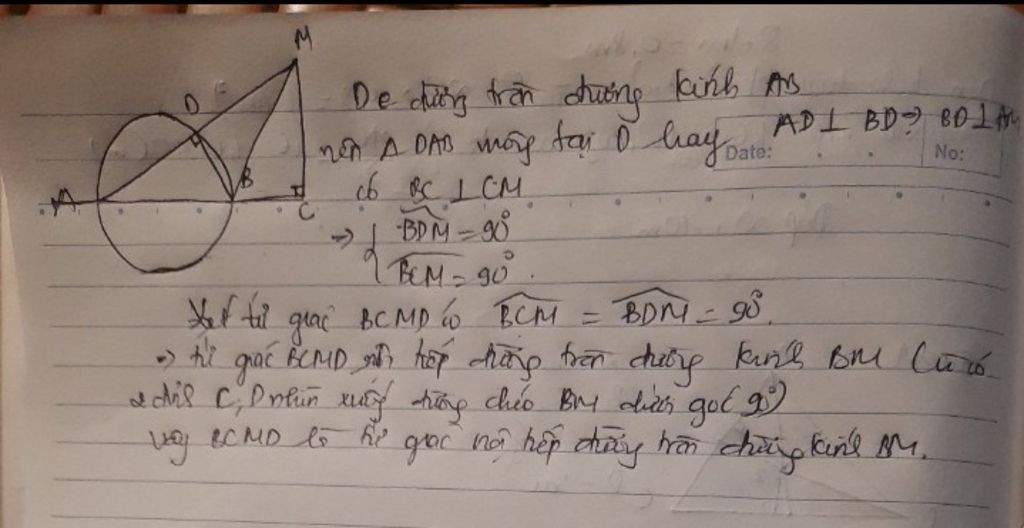 M
D
A
B
C
D e đường tròn đường kính AB
nên Δ DAB vuông tại D hay AD ⊥ BD ⇒ BD ⊥ AM
Date: No:
có BC ⊥ CM
⇒ { BDM = 90°
BCM = 90°.
Xét tứ giác BCMD có BCM = BDM = 90°.
⇒ tứ giác BCMD nội tiếp đường tròn đường kính BM (vì có
2 đỉnh C, D nhìn xuống đường chéo BM dưới góc 90°)
Vậy BCMD là tứ giác nội tiếp đường tròn đường kính BM.